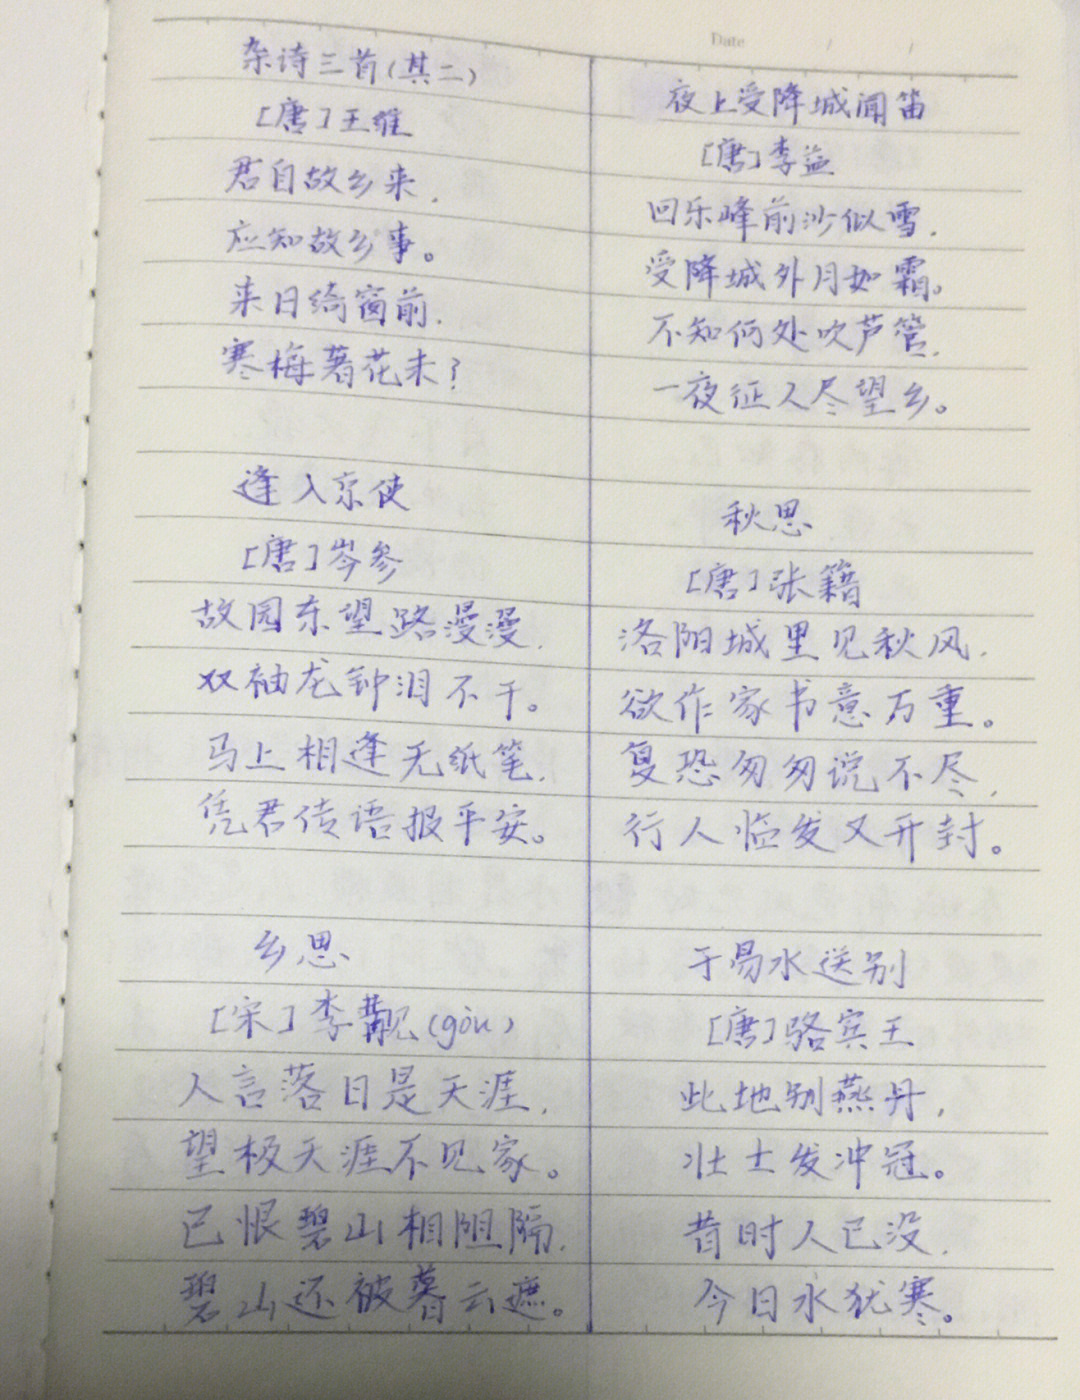 Date / /
杂诗三首(其二)
[唐]王维
君自故乡来,
应知故乡事。
来日绮窗前,
寒梅著花未?
逢入京使
[唐]岑参
故园东望路漫漫,
双袖龙钟泪不干。
马上相逢无纸笔,
凭君传语报平安。
乡思
[宋]李觏(gòu)
人言落日是天涯,
望极天涯不见家。
已恨碧山相阻隔,
碧山还被暮云遮。
夜上受降城闻笛
[唐]李益
回乐峰前沙似雪,
受降城外月如霜。
不知何处吹芦管,
一夜征人尽望乡。
秋思
[唐]张籍
洛阳城里见秋风,
欲作家书意万重。
复恐匆匆说不尽,
行人临发又开封。
于易水送别
[唐]骆宾王
此地别燕丹,
壮士发冲冠。
昔时人已没,
今日水犹寒。